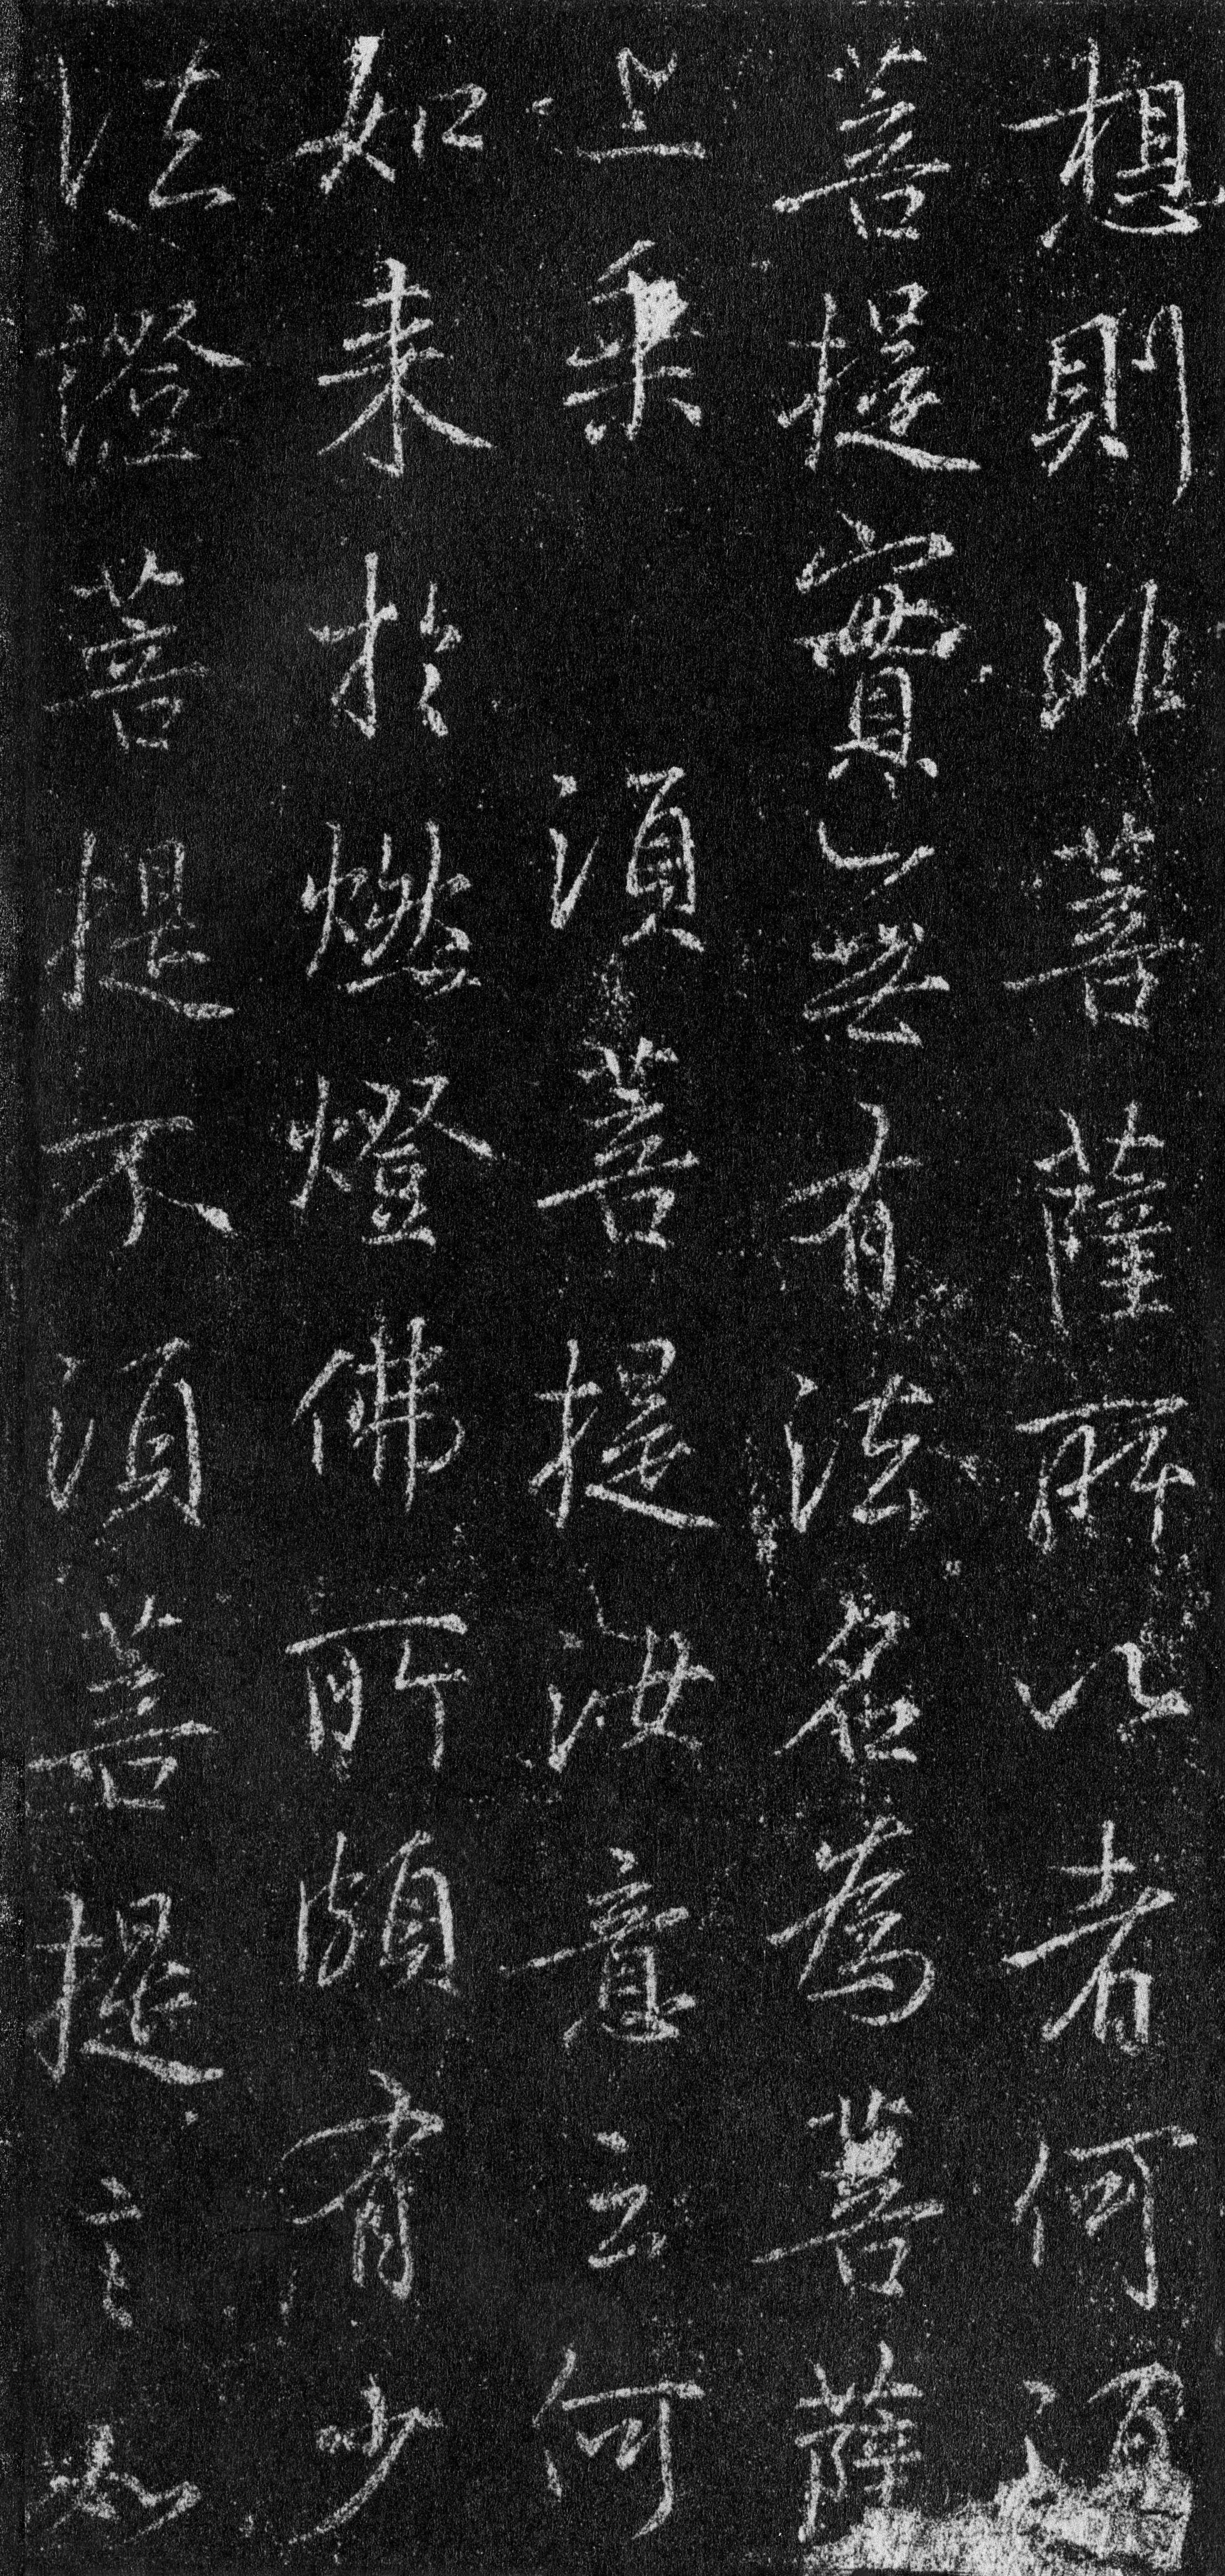 想則非菩薩所以者何須
菩提實無有法名為菩薩
上乘　須菩提汝意云何
如來於燃燈佛所頗有少
法證菩提不須菩提言如